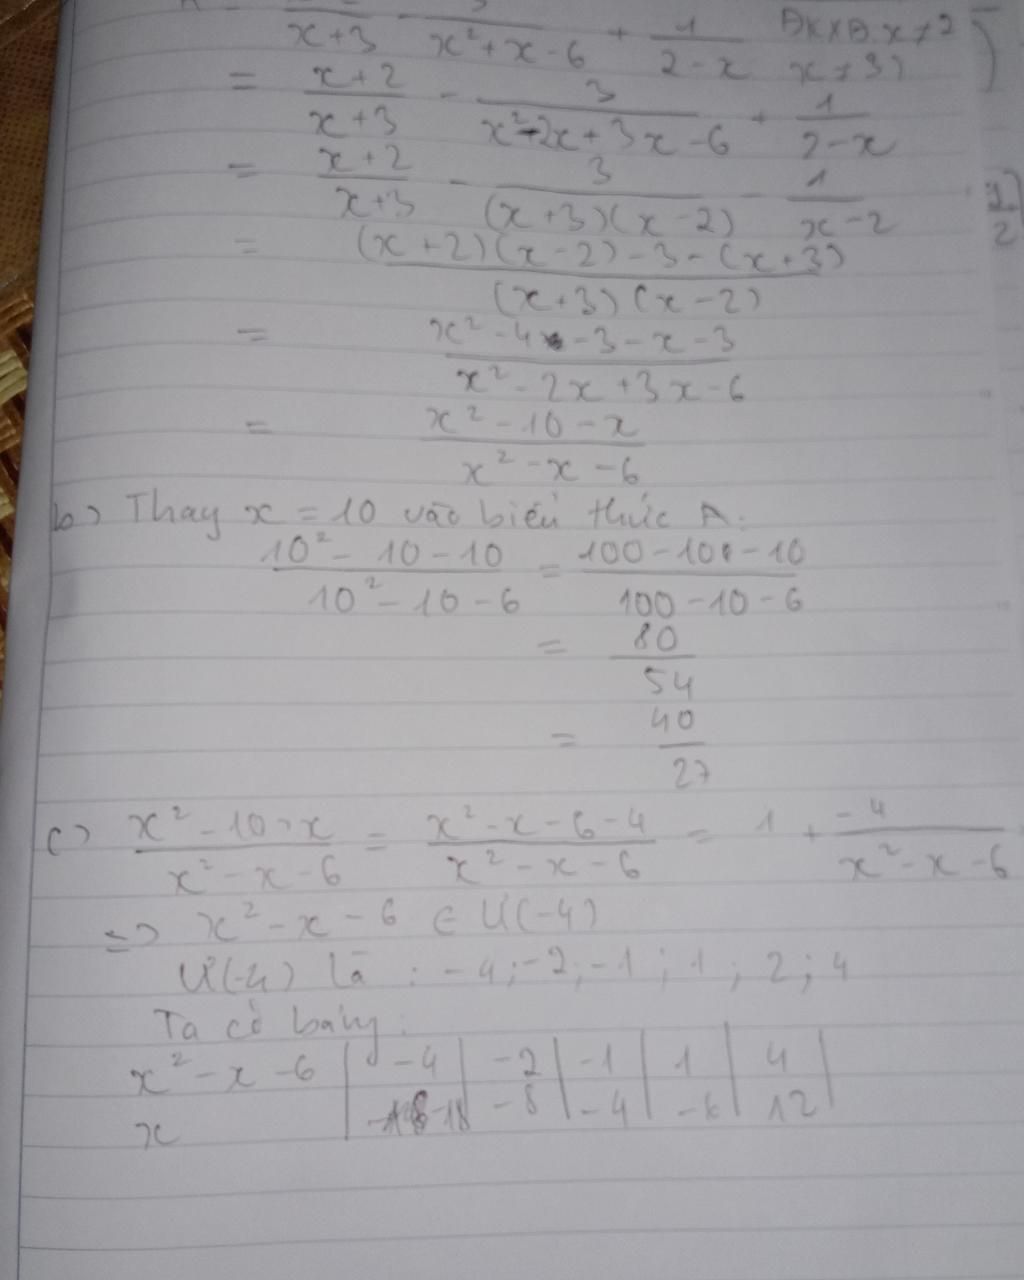 x+3 x²+x-6 + 1/(2-x) ĐKXĐ: x≠2
= (x+2)/(x+3) - 3/(x²-2x+3x-6) + 1/(2-x)
= (x+2)/(x+3) - 3/((x+3)(x-2)) - 1/(x-2)
= ((x+2)(x-2)-3-(x+3))/((x+3)(x-2))
= (x²-4-3-x-3)/(x²-2x+3x-6)
= (x²-10-x)/(x²-x-6)
b) Thay x = 10 vào biểu thức A:
(10²-10-10)/(10²-10-6) = (100-10-10)/(100-10-6)
= 80/54
= 40/27
c) (x²-10-x)/(x²-x-6) = (x²-x-6-4)/(x²-x-6) = 1 + (-4)/(x²-x-6)
=> x²-x-6 ∈ Ư(-4)
Ư(-4) là : -4;-2;-1;1;2;4
Ta có bảng:
x²-x-6 | -4 | -2 | -1 | 1 | 4 |
x | -18 | -8 | -4 | -6 | 12 |
1/2